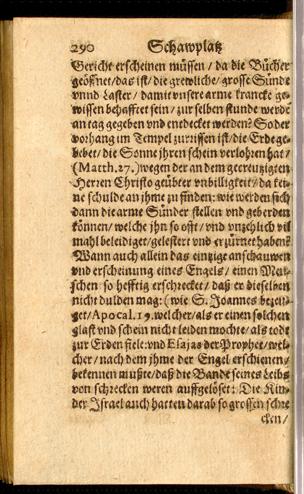 290 Schawplatz
Gericht erscheinen müssen / da die Bücher
geöffnet / das ist / die grewliche / grosse Sünde
vnnd Laster / damit vnsere arme krancke ge-
wissen behafftet sein / zur selben stunde werdē
an tag gegeben vnd entdecket werden? So der
vorhang im Tempel zurissen ist / die Erde ge-
bebet / die Sonne jhren schein verlohren hat /
(Matth. 27.) wegen der an dem gecreutzigten
Herren Christo geübter vnbilligkeit / da kei-
ne schulde an jhme zu finden: wie werden sich
dann die arme Sünder stellen vnd geberden
können / welche jhn so offt / vnd vnzehlich vil
mahl beleidiget / gelestert vnd erzürnet haben?
Wann auch allein das einzige anschauwen
vnd erscheinung eines Engels / einen Men-
schen so hefftig erschrecket / daß er dieselben
nicht dulden mag: (wie S. Joannes bezeu-
get / Apocal. 19. welcher / als er einen solchen
glast vnd schein nicht leiden mochte / als todt
zur Erden fiele: vnd Esajas der Prophet / wel-
cher / nach dem jhme der Engel erschienen /
bekennen müste / daß die Bande seines Leibs
von schrecken weren auffgelöset: Die Kin-
der Israel auch hatten darab so grossen schre-
cken /